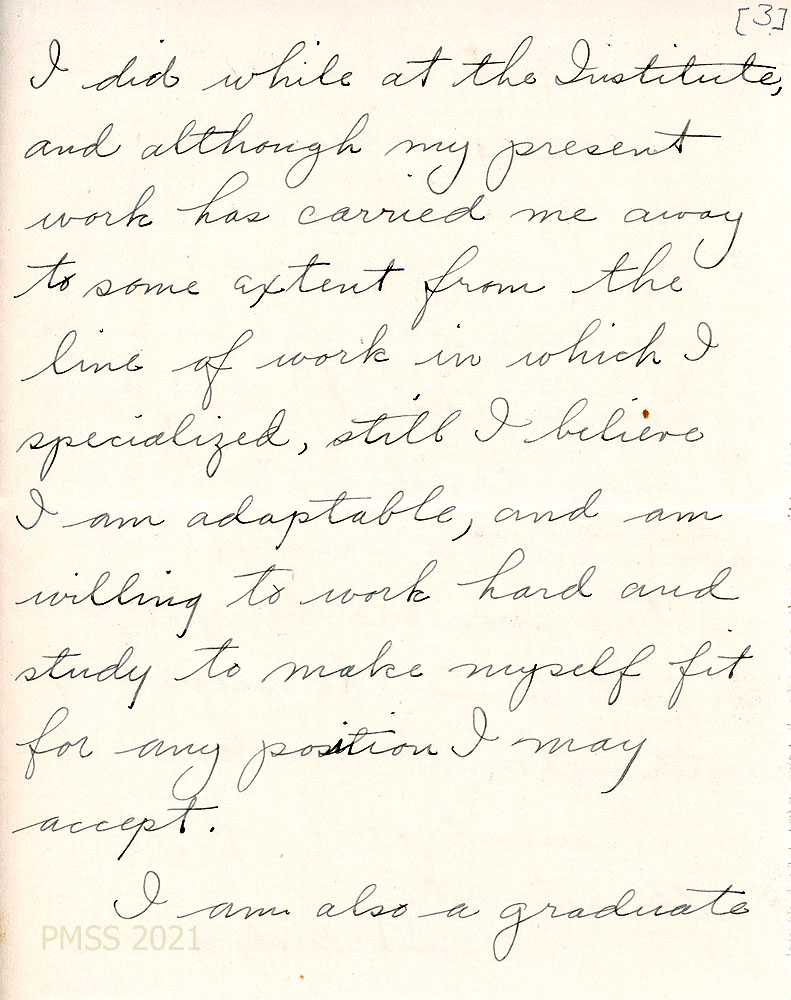 [3]
I did while at the Institute,
and although my present
work has carried me away
to some extent from the
line of work in which I
specialized, still I believe
I am adaptable, and am
willing to work hard and
study to make myself fit
for any position I may
accept.
I am also a graduate
PMSS 2021